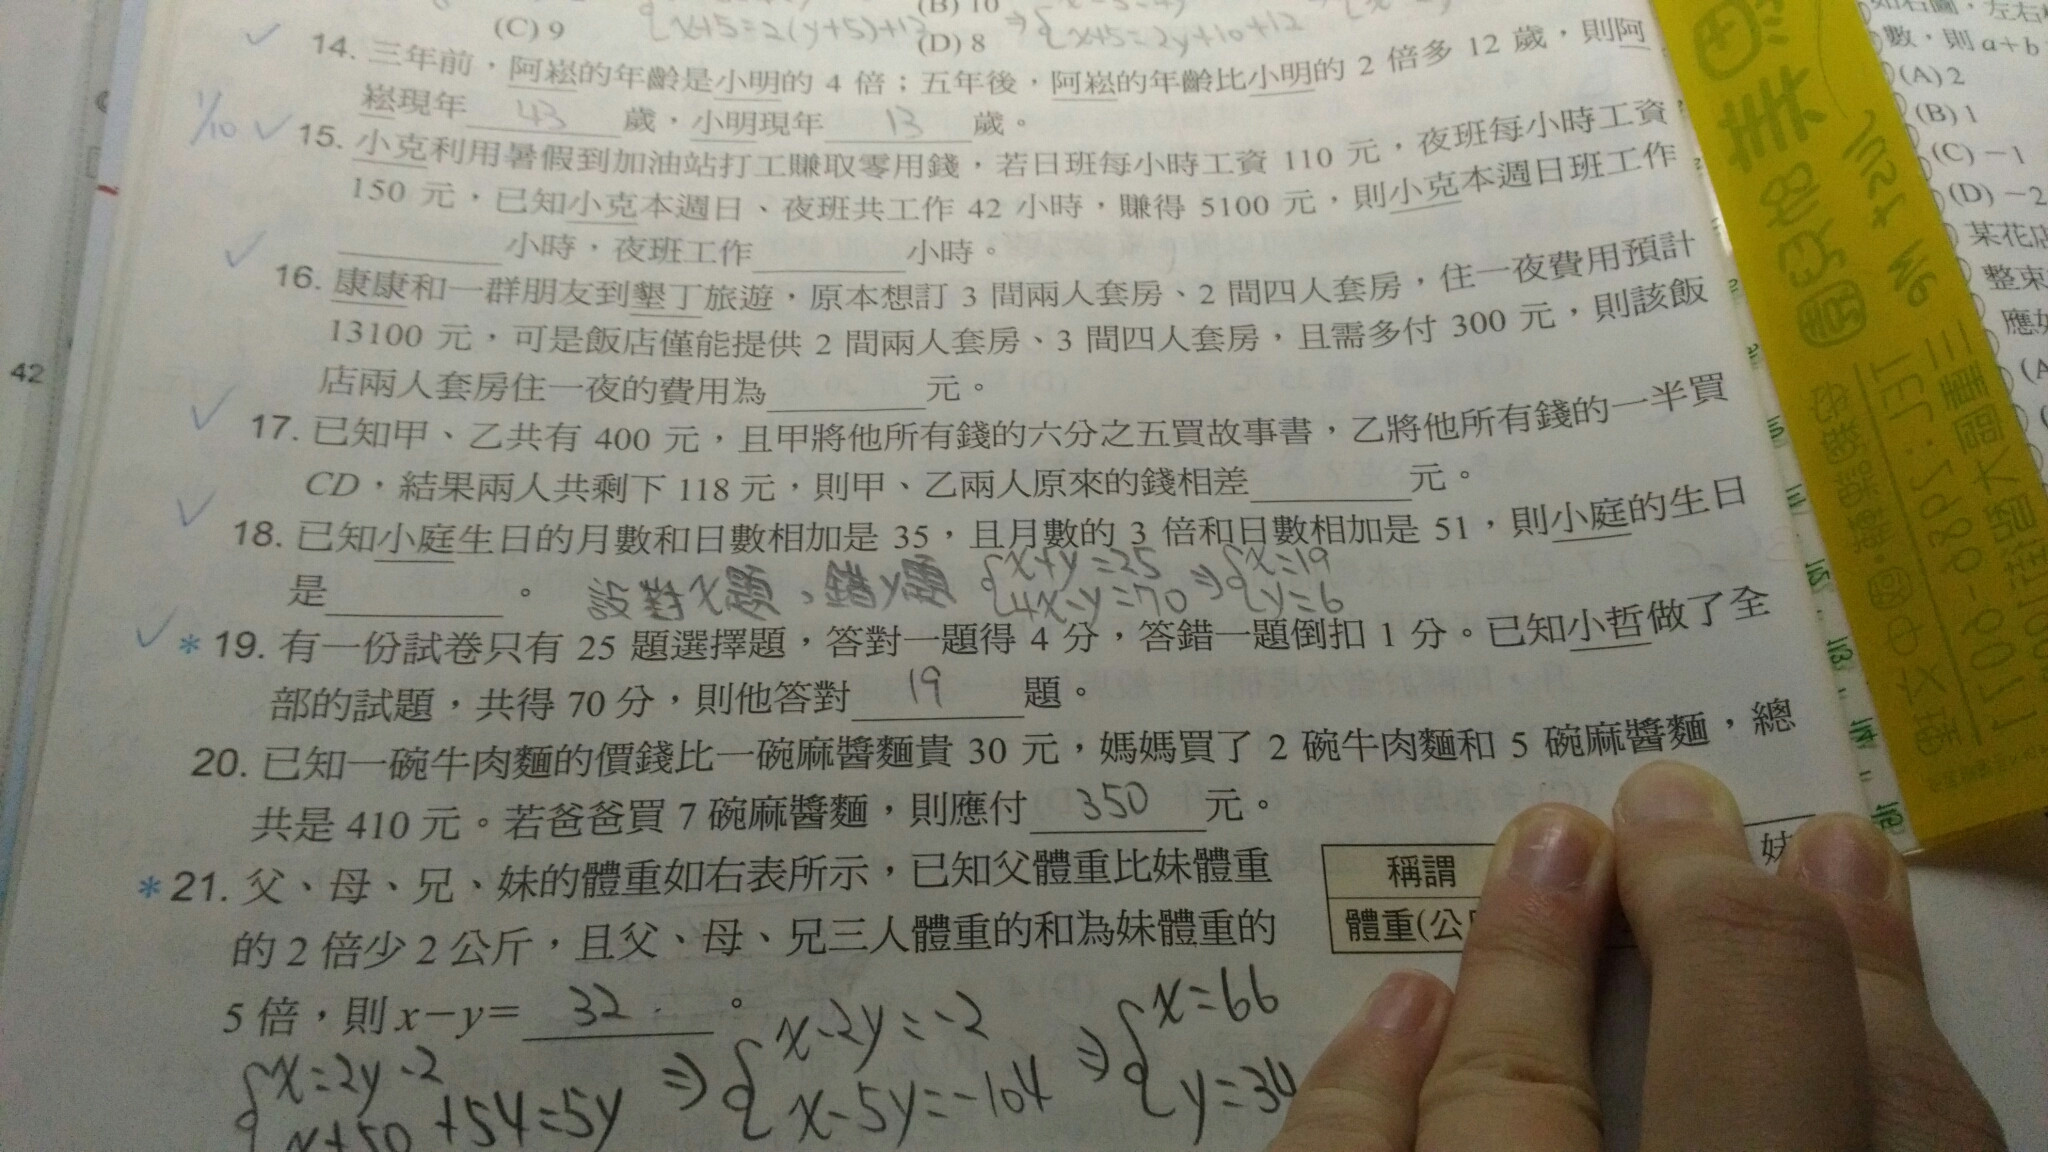 (C) 9
(B) 10
x+5=2(y+5)+12
(D) 8
⇒ x+5=2y+10+12
14. 三年前，阿崧的年齡是小明的 4 倍；五年後，阿崧的年齡比小明的 2 倍多 12 歲，則阿
崧現年 43 歲，小明現年 13 歲。
1/10
15. 小克利用暑假到加油站打工賺取零用錢，若日班每小時工資 110 元，夜班每小時工資
150 元，已知小克本週日、夜班共工作 42 小時，賺得 5100 元，則小克本週日班工作
小時，夜班工作 小時。
16. 康康和一群朋友到墾丁旅遊，原本想訂 3 間兩人套房、2 間四人套房，住一夜費用預計
13100 元，可是飯店僅能提供 2 間兩人套房、3 間四人套房，且需多付 300 元，則該飯
店兩人套房住一夜的費用為 元。
17. 已知甲、乙共有 400 元，且甲將他所有錢的六分之五買故事書，乙將他所有錢的一半買
CD，結果兩人共剩下 118 元，則甲、乙兩人原來的錢相差 元。
18. 已知小庭生日的月數和日數相加是 35，且月數的 3 倍和日數相加是 51，則小庭的生日
是 。
設對x題，錯y題 x+y=25 ⇒ x=19
4x-y=70 y=6
* 19. 有一份試卷只有 25 題選擇題，答對一題得 4 分，答錯一題倒扣 1 分。已知小哲做了全
部的試題，共得 70 分，則他答對 19 題。
20. 已知一碗牛肉麵的價錢比一碗麻醬麵貴 30 元，媽媽買了 2 碗牛肉麵和 5 碗麻醬麵，總
共是 410 元。若爸爸買 7 碗麻醬麵，則應付 350 元。
* 21. 父、母、兄、妹的體重如右表所示，已知父體重比妹體重
的 2 倍少 2 公斤，且父、母、兄三人體重的和為妹體重的
5 倍，則 x－y＝ 32 。
稱謂
妹
體重(公
x=2y-2 ⇒ x-2y=-2 ⇒ x=66
x+50+54=5y x-5y=-104 y=34
42
如右圖，左右
數，則 a+b
(A) 2
(B) 1
(C) －1
(D) －2
某花店
整束
應如
(A